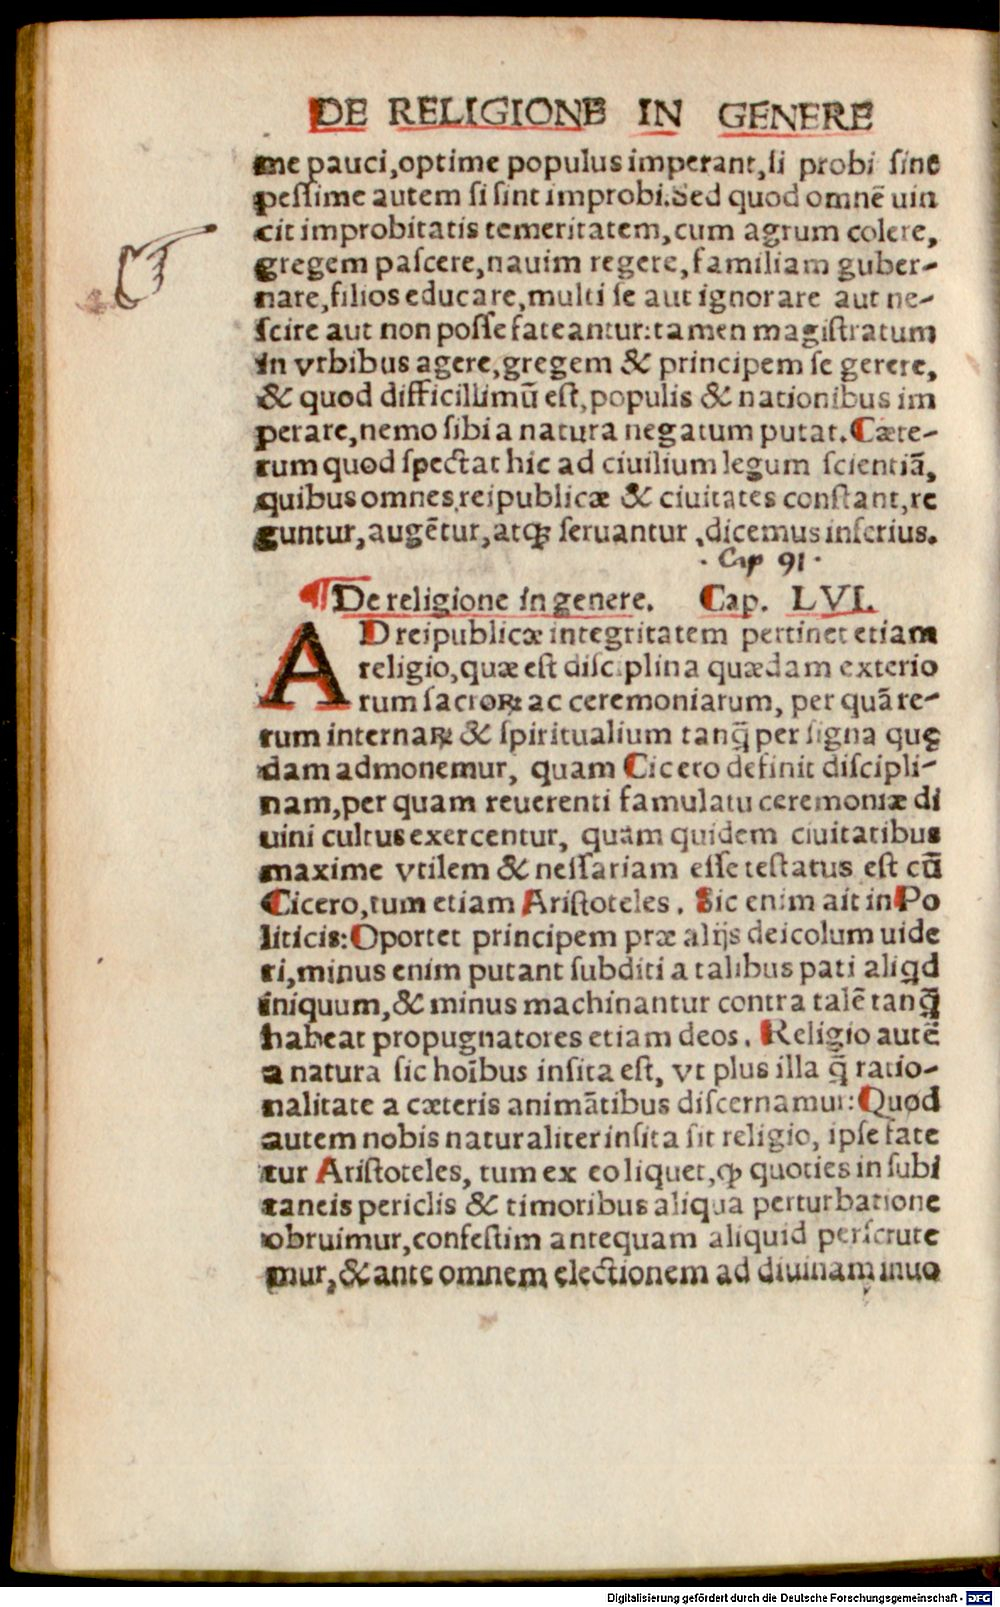 DE RELIGIONE IN GENERE
me pauci,optime populus imperant,ſi probi ſint
peſſime autem ſi ſint improbi.Sed quod omnē uin
cit improbitatis temeritatem,cum agrum colere,
gregem paſcere,nauim regere,familiam guber-
nare,filios educare,multi ſe aut ignorare aut ne-
ſcire aut non poſſe fateantur:tamen magiſtratum
in vrbibus agere,gregem & principem ſe gerere,
& quod difficillimū eſt,populis & nationibus im
perare,nemo ſibi a natura negatum putat.Cæte-
rum quod ſpectat hic ad ciuilium legum ſcientiā,
quibus omnes reipublicæ & ciuitates conſtant,re
guntur,augētur,atqꝫ ſeruantur ,dicemus inferius.
· Cap 91 ·
¶De religione in genere. Cap. LVI.
AD reipublicæ integritatem pertinet etiam
religio,quæ eſt diſciplina quædam exterio
rum ſacroꝝ ac ceremoniarum, per quā re-
rum internaꝝ & ſpiritualium tanq̄ per ſigna quę
dam admonemur, quam Cicero definit diſcipli-
nam,per quam reuerenti famulatu ceremoniæ di
uini cultus exercentur, quam quidem ciuitatibus
maxime vtilem & neſſariam eſſe teſtatus eſt cū
Cicero,tum etiam Ariſtoteles. Sic enim ait in Po
liticis:Oportet principem præ alijs deicolum uide
ri,minus enim putant ſubditi a talibus pati aliqd
iniquum,& minus machinantur contra talē tanq̄
habeat propugnatores etiam deos. Religio autē
a natura ſic hoībus inſita eſt, vt plus illa q̄ ratio-
nalitate a cæteris animātibus diſcernamur:Quod
autem nobis naturaliter inſita ſit religio, ipſe fate
tur Ariſtoteles, tum ex eo liquet,ꝙ quoties in ſubi
taneis periclis & timoribus aliqua perturbatione
obruimur,confeſtim antequam aliquid perſcrute
mur,& ante omnem electionem ad diuinam inuo
Digitalisierung gefördert durch die Deutsche Forschungsgemeinschaft - DFG